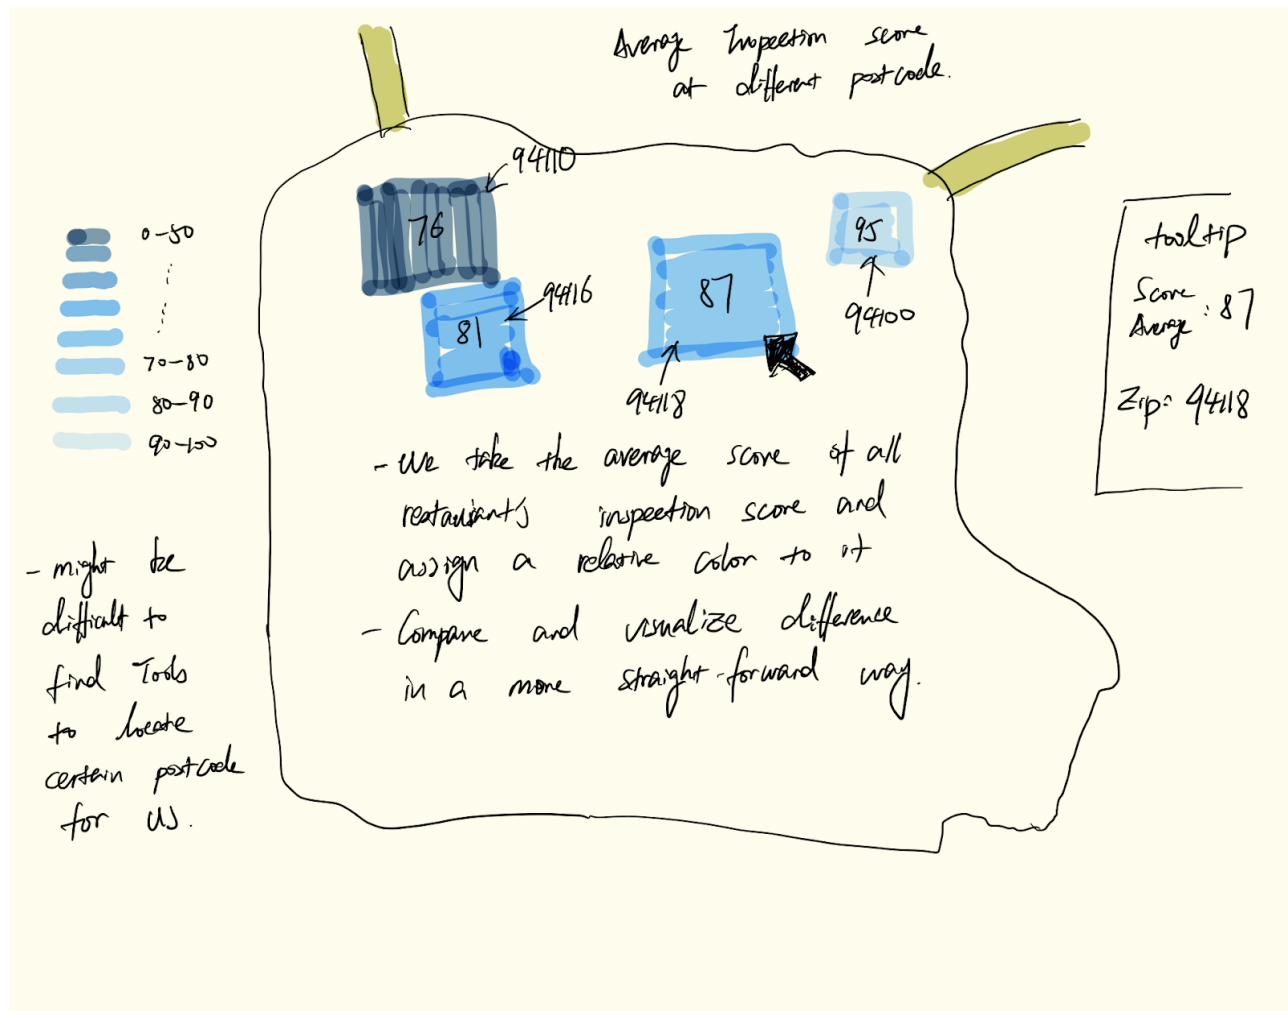 Average Inspection score
at different postcode.
94110
76
95
87
94116
81
94100
94118
0-50
70-80
80-90
90-100
tooltip
Score
Average : 87
Zip: 94118
- We take the average score of all
restaurant's inspection score and
assign a relative color to it
- Compare and visualize difference
in a more straight-forward way.
- might be
difficult to
find Tools
to locate
certain postcode
for us.